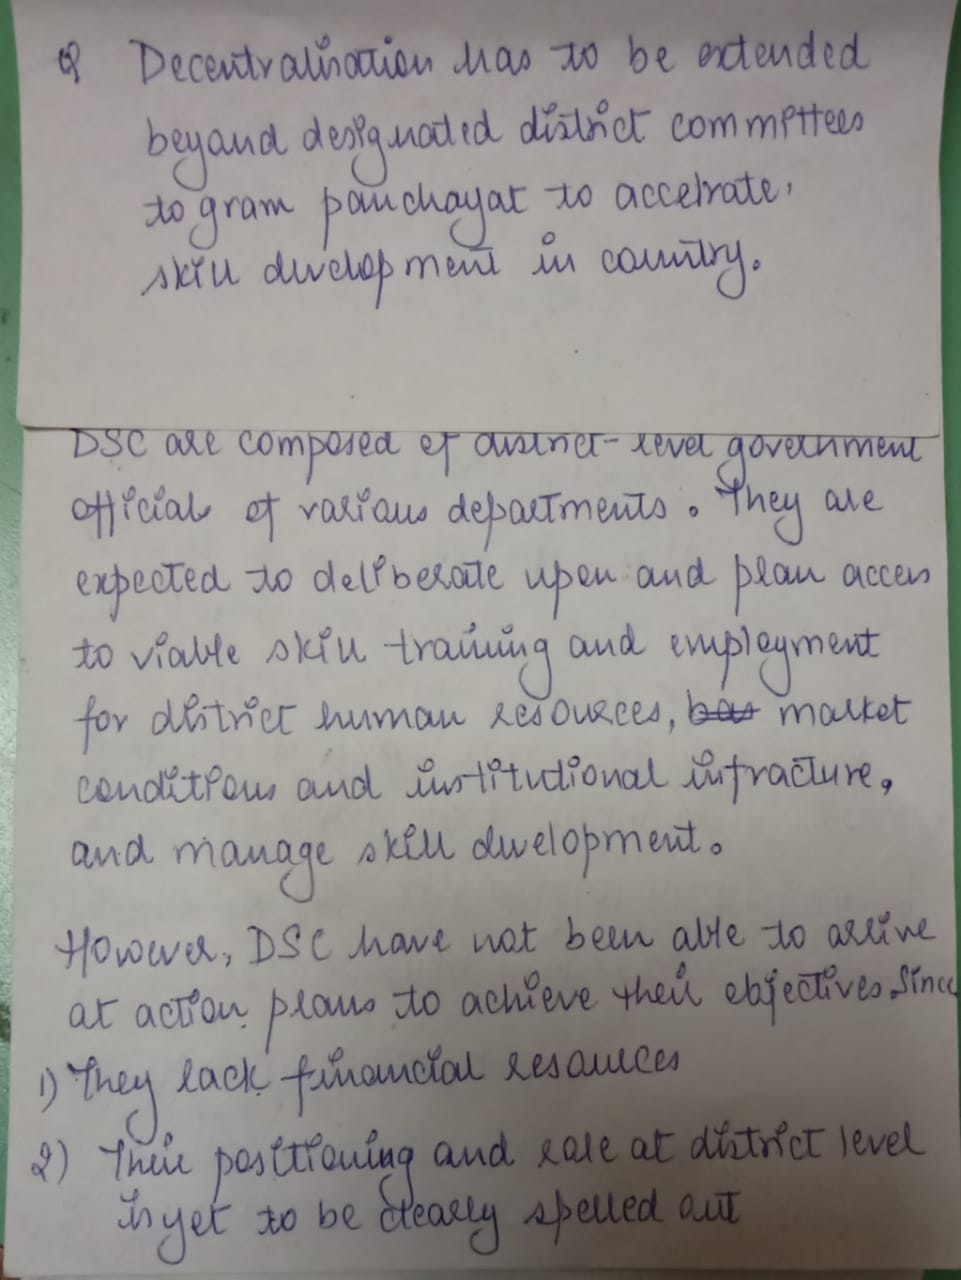 Q Decentralisation has to be extended
beyand designated district committees
to gram panchayat to accelrate
skill development in country.
DSC are composed of district-level government
official of various departments. They are
expected to deliberate upon and plan access
to viable skill training and employment
for district human resources, bas market
conditions and institutional infracture,
and manage skill development.
However, DSC have not been able to arrive
at action plans to achieve their objectives since
1) They lack financial resources
2) Their positioning and role at district level
is yet to be clearly spelled out